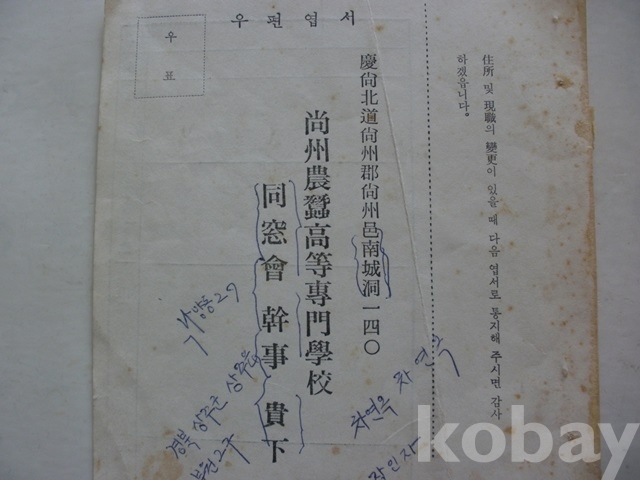 우편엽서
우표
住所 및 現職의 變更이 있을 때 다음 엽서로 통지해 주시면 감사
하겠읍니다.
慶尙北道尙州郡尙州邑南城洞一四〇
尙州農蠶高等專門學校
同窓會 幹事 貴下
차 연옥
차연옥
경북 상주군 상주읍
kobay